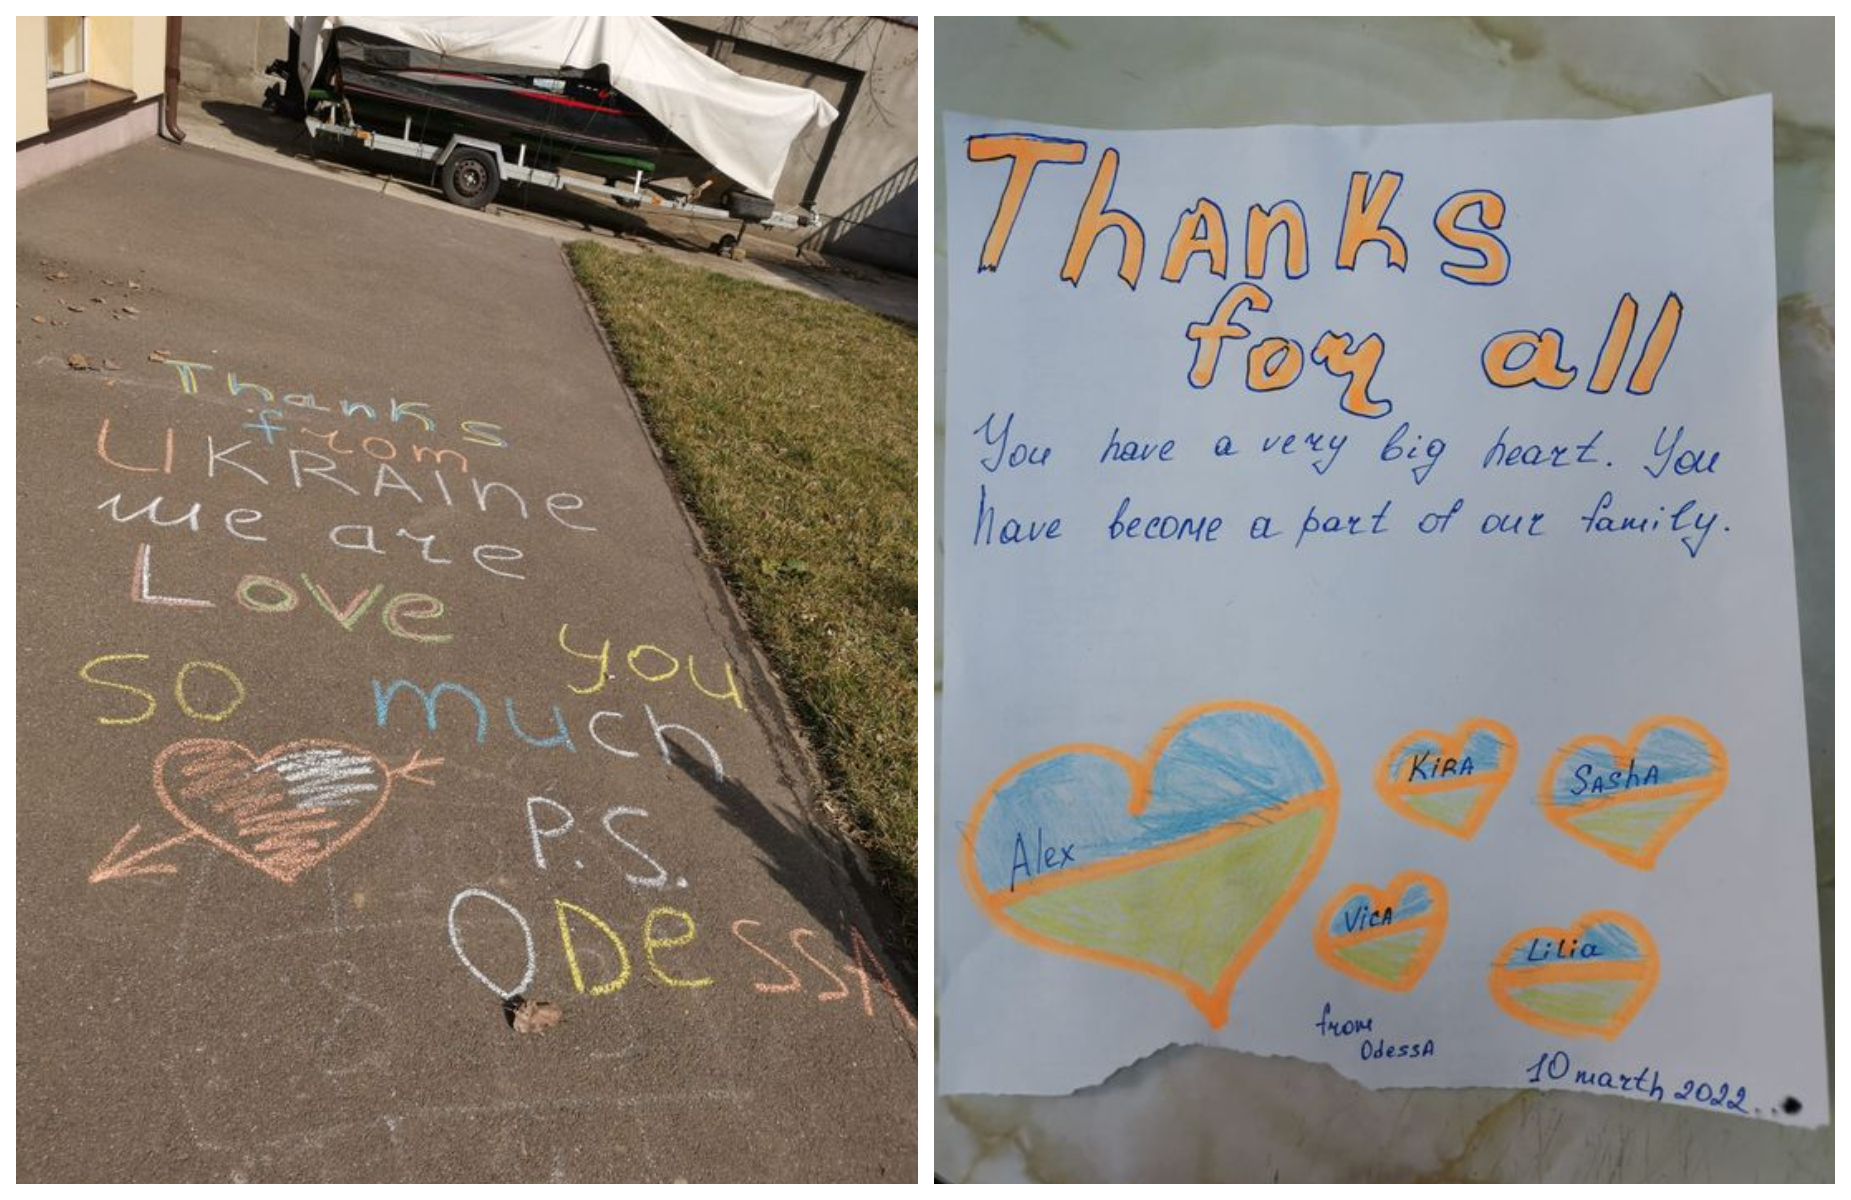 Thanks
from
UKRAINE
we are
Love you
so much
P.S.
ODessA
Thanks
for all
You have a very big heart. You
have become a part of our family.
Alex
KIRA
SAShA
VicA
Lilia
from
OdessA
10 marth 2022...